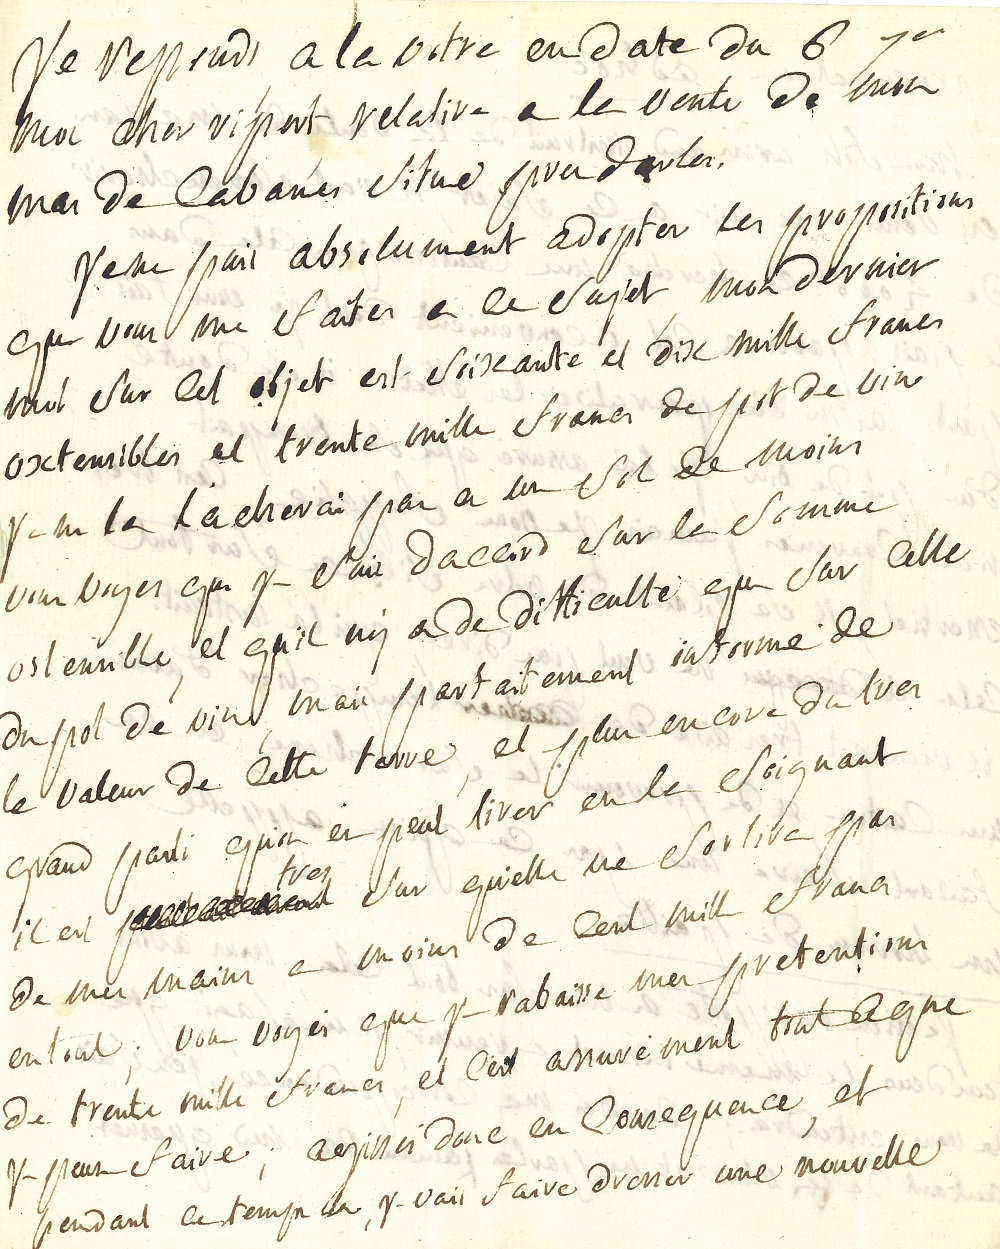 Je repponds a la votre en date du 6 7er
mon cher ripert relative a la vente de mon
mas de Cabanes situé pres darles.
Je ne puis absolument adopter les propositions
que vous me faites a ce sujet mon dernier
mot sur cet objet est soixante et dix mille francs
oxtensibles et trente mille francs de pot de vin
je ne la lacherai pas a un sol de moins
vous voyes que je suis daccord sur la somme
ostensible, et quil ny a de difficulté que sur celle
du pot de vin, mais parfaitement informé de
la valeur de cette terre, et plus encore du tres
grand parti quon en peut tirer en la soignant
il est tres sur quelle ne sortira pas
de mes mains a moins de cent mille francs
en tout; vous voyés que je rabaisse mes pretentions
de trente mille francs, et cest assurement tout ce que
je peux faire; agissés donc en consequence, et
pendant ce temps la, je vais faire dresser une nouvelle